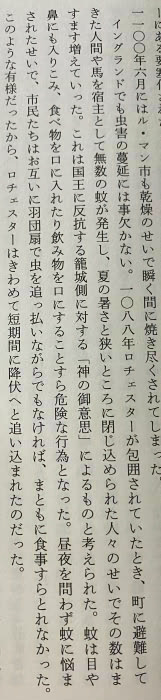 一一〇〇年六月にはル・マン市も乾燥のせいで瞬く間に焼き尽くされてしまった。
イングランドでも虫害の蔓延には事欠かない。一〇八八年ロチェスターが包囲されていたとき、町に避難して
きた人間や馬を宿主として無数の蚊が発生し、夏の暑さと狭いところに閉じ込められた人々のせいでその数はま
すます増えていった。これは国王に反抗する籠城側に対する「神の御意思」によるものと考えられた。蚊は目や
鼻にも入りこみ、食べ物を口に入れたり飲み物を口にすることすら危険な行為となった。昼夜を問わず蚊に悩ま
されたせいで、市民たちはお互いに羽団扇で虫を追っ払いながらでもなければ、まともに食事すらとれなかった。
このような有様だったから、ロチェスターはきわめて短期間に降伏へと追い込まれたのだった。